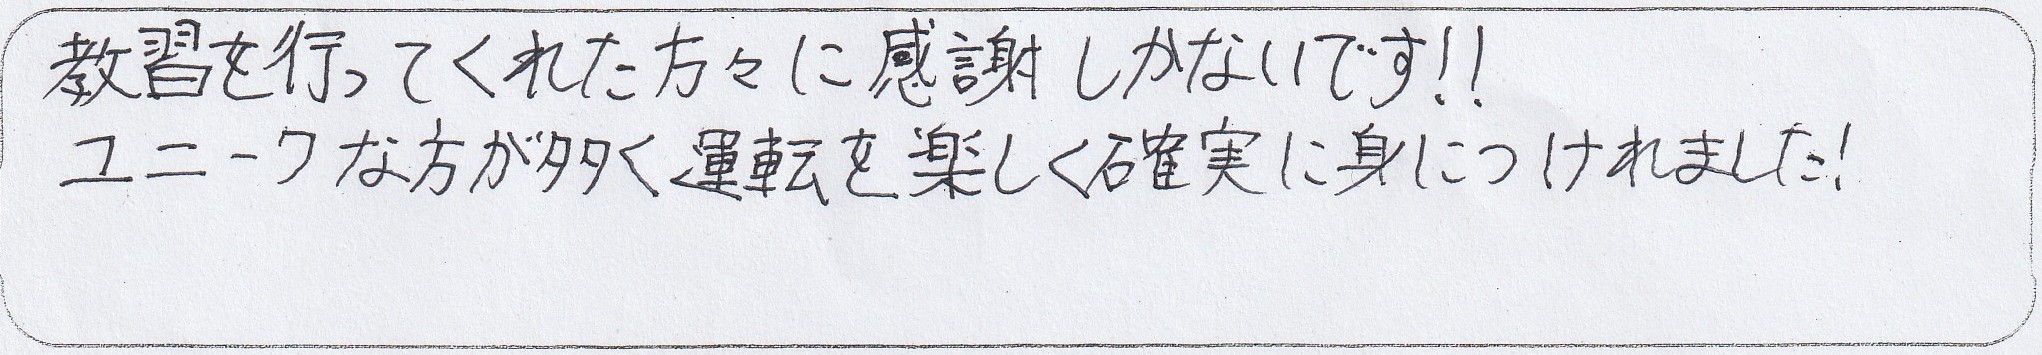 教習を行ってくれた方々に感謝しかないです!!
ユニークな方が多く運転を楽しく確実に身につけれました!